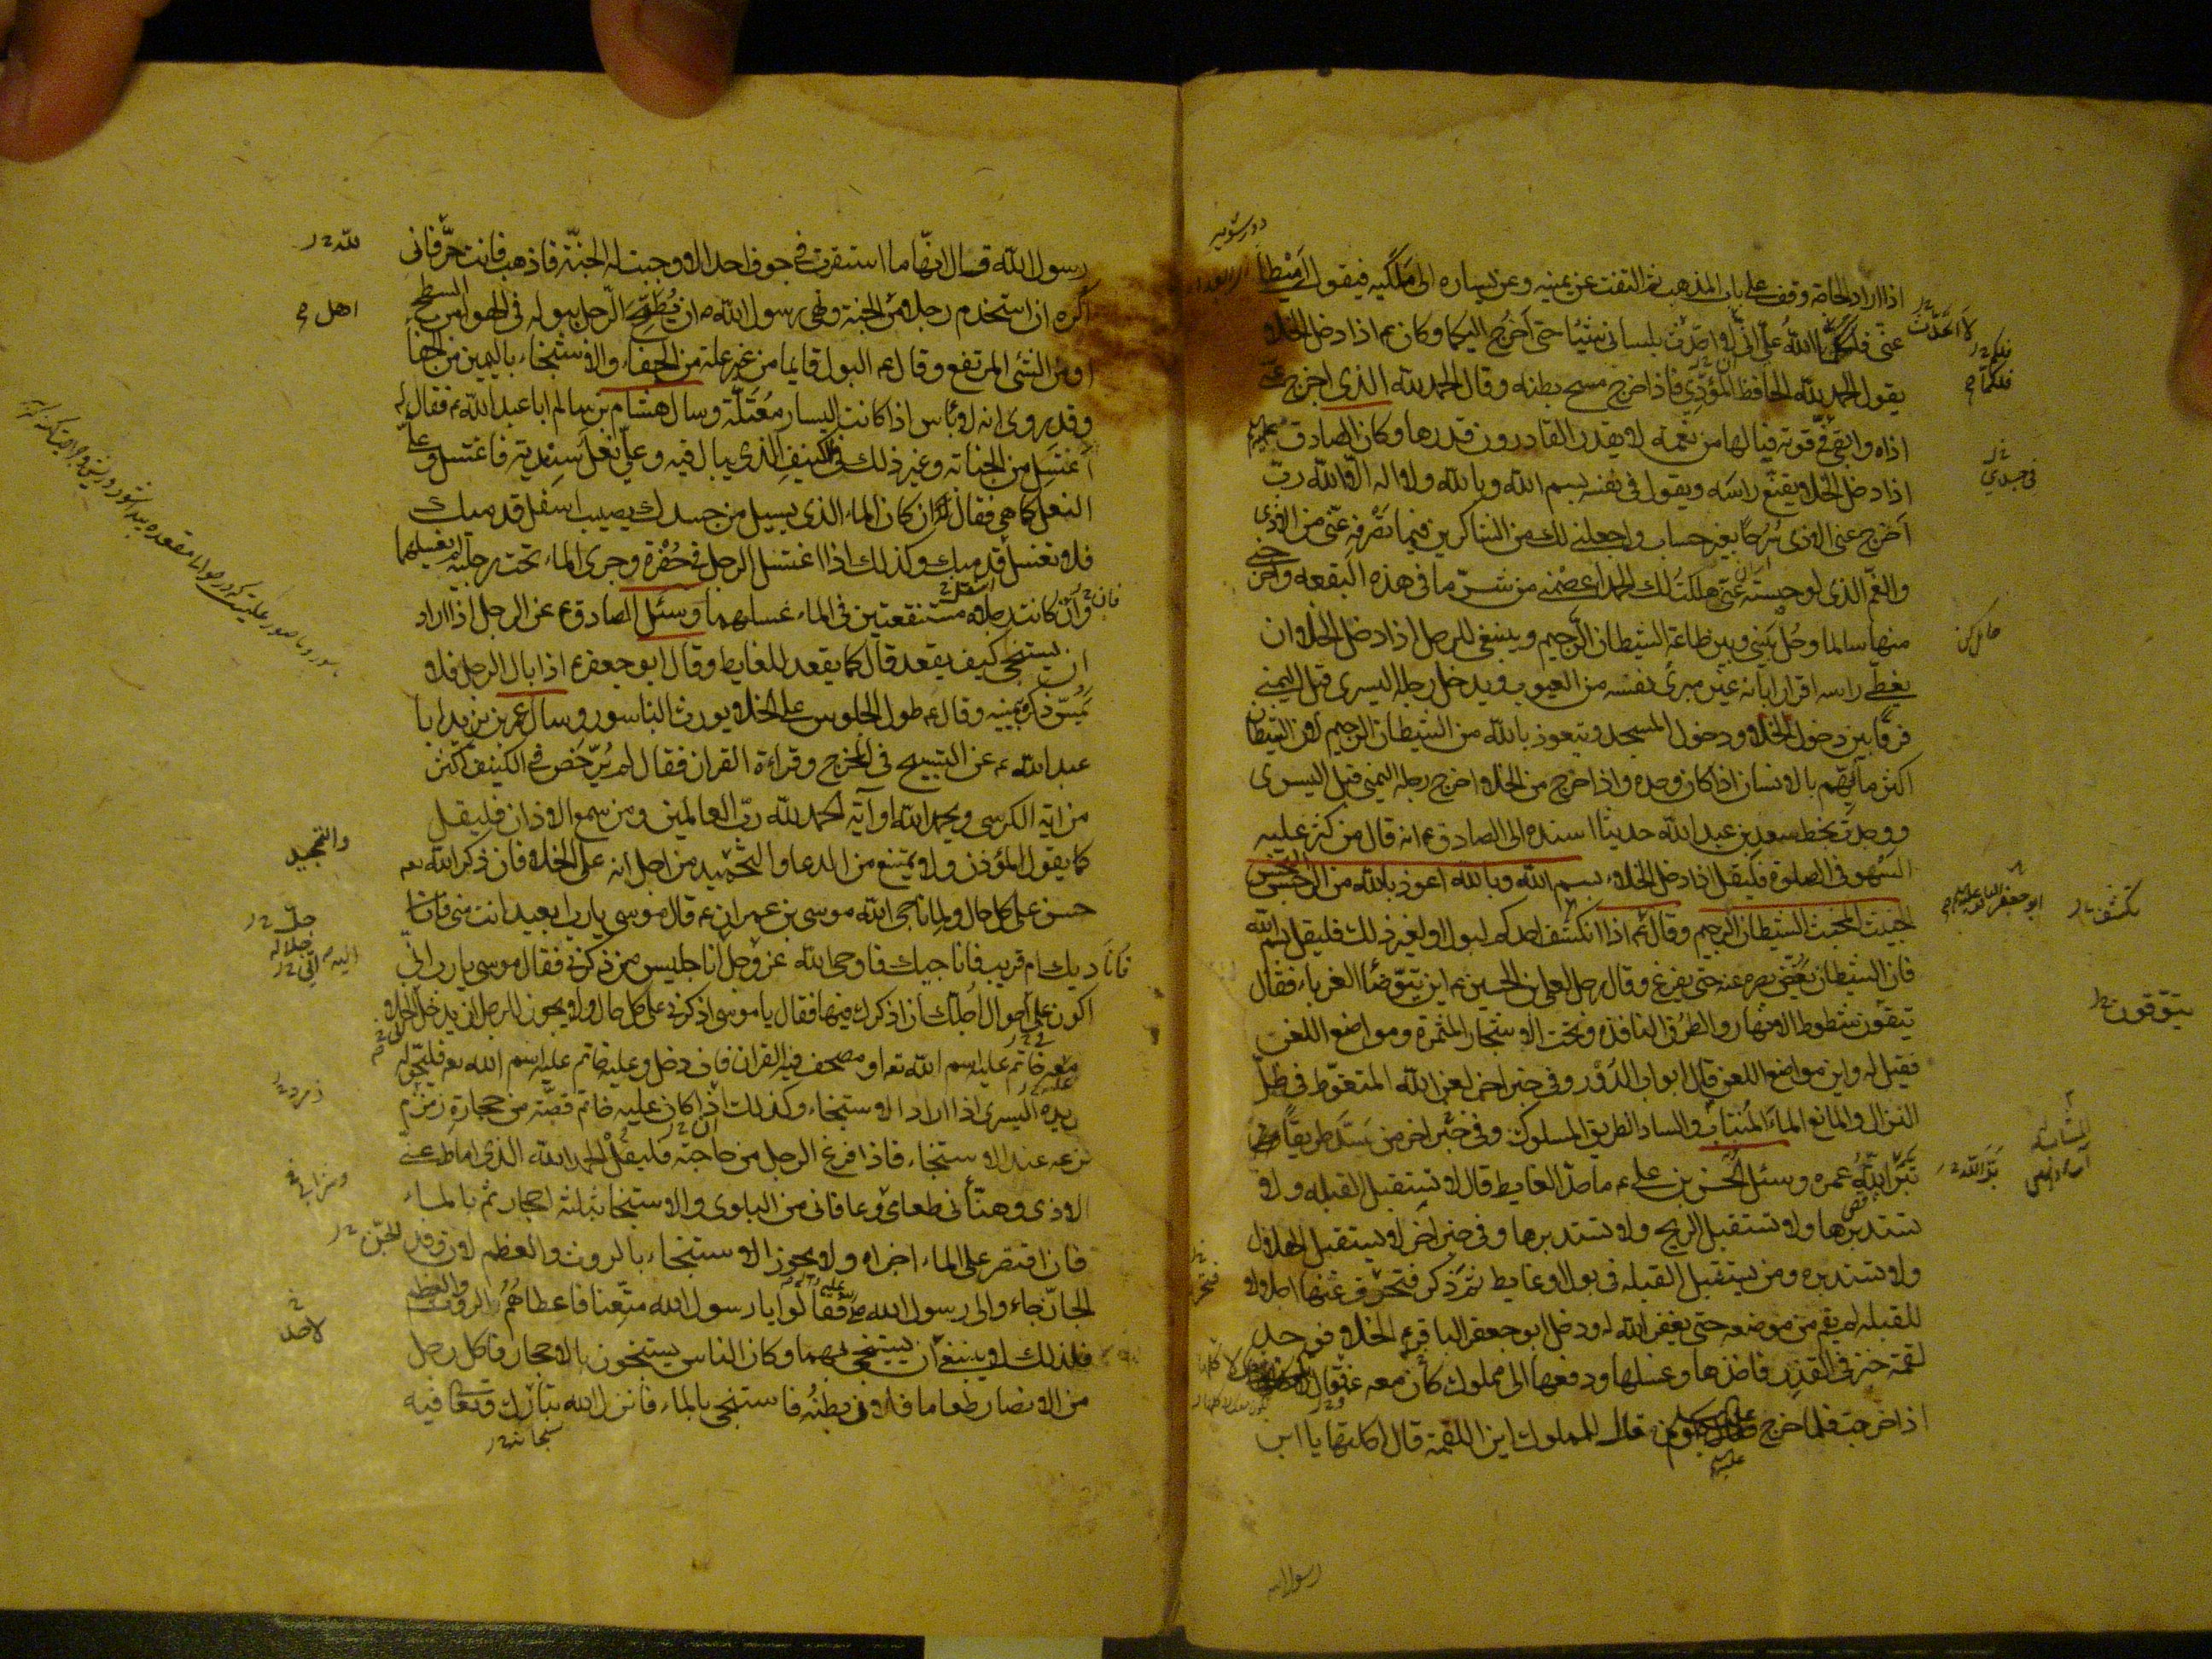 اذا اراد الحاجة وقف على باب المذهب ثم التفت عن يمينه وعن يساره الى ملكيه فيقول اميطا
عني فلكما الله علي اني لا احدث بلساني شيئا حتى اخرج اليكما وكان ع اذا دخل الخلا
يقول الحمد لله الحافظ المؤدي فاذا خرج مسح بطنه وقال الحمد لله الذي اخرج عني
اذاه وابقى في قوته فيا لها من نعمة لا يقدر القادرون قدرها وكان الصادق
اذا دخل الخلا يقنع راسه ويقول في نفسه بسم الله وبالله ولا اله الا الله رب
اخرج عني الاذى سرحا بغير حساب واجعلني لك من الشاكرين فيما تصرفه عني من الاذى
والغم الذي لو حبسته عني هلكت لك الحمد اعصمني من شر ما في هذه البقعة واخرجني
منها سالما وحل بيني وبين طاعة الشيطان الرجيم وينبغي للرجل اذا دخل الخلا ان
يغطي راسه اقرارا بانه غير مبرئ نفسه من العيوب ويدخل رجله اليسرى قبل اليمنى
فرقا بين دخول الخلا ودخول المسجد ويتعوذ بالله من الشيطان الرجيم لان الشيطان
اكثر ما يهم بالانسان اذا كان وحده واذا خرج من الخلا اخرج رجله اليمنى قبل اليسرى
ووجدت بخط سعد بن عبد الله حديثا اسنده الى الصادق ع انه قال من كثر عليه
السهو في الصلوة فليقل اذا دخل الخلاء بسم الله وبالله اعوذ بالله من الرجس النجس
الخبيث المخبث الشيطان الرجيم وقال ع اذا انكشف احدكم لبول او لغير ذلك فليقل بسم الله
فان الشيطان يغض بصره عنه حتى يفرغ وقال رجل لعلي بن الحسين ع اين يتوضأ الغرباء فقال
يتقون شطوط الانهار والطرق النافذة وتحت الاشجار المثمرة ومواضع اللعن
فقيل له واين مواضع اللعن قال ابواب الدور وفي خبر اخر لعن الله المتغوط في ظل
النزال والمانع الماء المنتاب والساد الطريق المسلوك وفي خبر اخر من سد طريقا
بتر الله عمره وسئل الحسن بن علي ع ما حد الغايط قال لا تستقبل القبلة ولا
تستدبرها ولا تستقبل الريح ولا تستدبرها وفي خبر اخر لا تستقبل الهلال
ولا تستدبره ومن يستقبل القبلة في بول او غايط ثم ذكر فتحرف عنها اجلالا
للقبلة لم يقم من موضعه حتى يغفر الله له ودخل ابو جعفر الباقر ع الخلا فوجد
لقمة خبز في القذر فاخذها وغسلها ودفعها الى مملوك كان معه فقال
اذا خرجت فلما خرج ع قال للمملوك اين اللقمة قال اكلتها يا ابن
رسول الله
لا احدث
فلكما
في جسدي
ابو جعفر الباقر عليه السلم
بتر الله
يتوقون
رسول الله قال انها ما استقرت في جوف احد الا ووجبت له الجنة فاذهب فانت حر فاني
اكره ان استخدم رجلا من الجنة ونهى رسول الله ص ان يطمح الرجل ببوله في الهوا من السطح
او من الشئ المرتفع وقال ع البول قايما من غير علة من الجفاء والاستنجاء باليمين من الجفا
وقد روى انه لا باس اذا كانت اليسار معتلة وسال هشام بن سالم ابا عبد الله ع فقال له
اغتسل من الجنابة وغير ذلك في الكنيف الذي يبال فيه وعلي نعل سندية فاغتسل وعلي
النعل كما هي فقال ان كان الماء الذي يسيل من جسدك يصيب اسفل قدميك
فلا تغسل قدميك وكذلك اذا اغتسل الرجل في حفرة وجرى الماء تحت رجليه لم يغسلهما
وان كانت رجلاه مستنقعتين في الماء غسلهما وسئل الصادق ع عن الرجل اذا اراد
ان يستنجي كيف يقعد قال كما يقعد للغايط وقال ابو جعفر ع اذا بال الرجل فلا
يمس ذكره بيمينه وقال ع طول الجلوس على الخلا يورث الباسور وسال عمر بن يزيد ابا
عبد الله ع عن التسبيح في المخرج وقراءة القران فقال لم يرخص في الكنيف اكثر
من اية الكرسي ويحمد الله او اية الحمد لله رب العالمين ومن سمع الاذان فليقل
كما يقول المؤذن ولا يمتنع من الدعا والتحميد من اجل انه على الخلا فان ذكر الله تع
حسن على كل حال ولما ناجى الله موسى بن عمران ع قال موسى يا رب ابعيد انت مني فانا
ديك ام قريب فاناجيك فاوحى الله عز وجل انا جليس من ذكرني فقال موسى يا رب اني
اكون على احوال اجلك ان اذكرك فيها فقال يا موسى اذكرني على كل حال ولا يجوز للرجل ان يدخل الخلا
معه خاتم عليه اسم الله تع او مصحف فيه القران فان دخل وعليه خاتم عليه اسم الله تع فليحوله
يده اليسرى اذا اراد الاستنجاء وكذلك اذا كان عليه خاتم فصه من حجارة زمزم
نزعه عند الاستنجاء فاذا فرغ الرجل من حاجته فليقل الحمد لله الذي اماط عني
الاذى وهنأني طعامي وعافاني من البلوى والاستنجا بثلثة احجار ثم بالماء
فان اقتصر على الماء اجزاه ولا يجوز الاستنجاء بالروث والعظم لان وفد
الجان جاءوا الى رسول الله ص فقالوا يا رسول الله متعنا فاعطاهم الروث والعظم
فلذلك لا ينبغي ان يستنجي بهما وكان الناس يستنجون بالاحجار فاكل رجل
من الانصار طعاما فلان بطنه فاستنجى بالماء فانزل الله تبارك وتعا فيه
سبحانه
لله
اهل
والتمجيد
جل جلاله
زمرد
للجن
لاحد